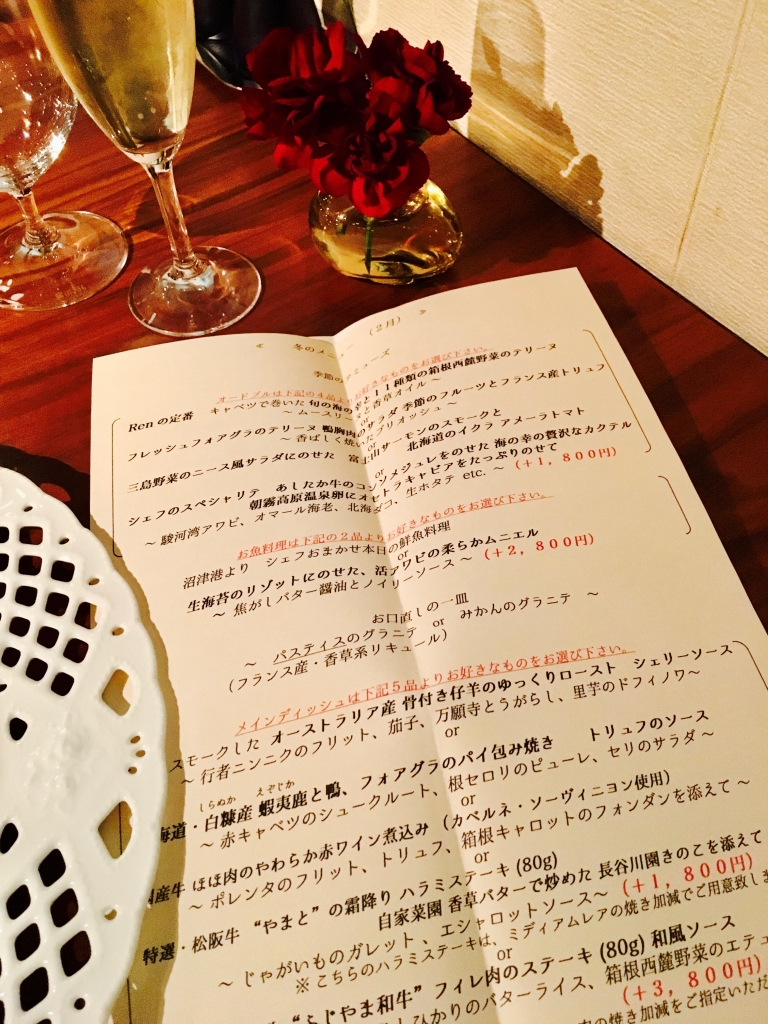 《 冬のメニュー （2月） 》
季節の アミューズ
オードブルは下記の４品よりお好きなものをお選び下さい。
Renの定番 キャベツで巻いた 旬の海の幸と１１種類の箱根西麓野菜のテリーヌ
～ ムースリーヌと香草オイル ～
フレッシュフォアグラのテリーヌ 鴨胸肉のサラダ 季節のフルーツとフランス産トリュフ
～ 香ばしく焼いたブリオッシュ ～
or
三島野菜のニース風サラダにのせた 富士山サーモンのスモークと
北海道のイクラ アメーラトマト
or
シェフのスペシャリテ あしたか牛のコンソメジュレをのせた 海の幸の贅沢なカクテル
朝霧高原温泉卵にオセトラキャビアをたっぷりのせて
～ 駿河湾アワビ、オマール海老、北海ダコ、生ホタテ etc. ～ （＋１，８００円）
お魚料理は下記の２品よりお好きなものをお選び下さい。
沼津港より シェフおまかせ本日の鮮魚料理
or
生海苔のリゾットにのせた、活アワビの柔らかムニエル
～ 焦がしバター醤油とノイリーソース ～ （＋２，８００円）
お口直しの一皿
～ パスティスのグラニテ or みかんのグラニテ ～
（フランス産・香草系リキュール）
メインディッシュは下記５品よりお好きなものをお選び下さい。
スモークした オーストラリア産 骨付き仔羊のゆっくりロースト シェリーソース
～ 行者ニンニクのフリット、茄子、万願寺とうがらし、里芋のドフィノワ～
or
しらぬか えぞじか
海道・白糠産 蝦夷鹿と鴨、フォアグラのパイ包み焼き トリュフのソース
～ 赤キャベツのシュークルート、根セロリのピューレ、セリのサラダ ～
or
産牛 ほほ肉のやわらか赤ワイン煮込み （カベルネ・ソーヴィニヨン使用）
～ ポレンタのフリット、トリュフ、箱根キャロットのフォンダンを添えて ～
or
特選・松阪牛 “やまと”の霜降り ハラミステーキ (80g)
自家菜園 香草バターで炒めた 長谷川園きのこを添えて
～ じゃがいものガレット、エシャロットソース～ （＋１，８００円）
※ こちらのハラミステーキは、ミディアムレアの焼き加減でご用意致しま
or
“ふじやま和牛” フィレ肉のステーキ (80g) 和風ソース
しひかりのバターライス、箱根西麓野菜のエテュ
（＋３，８００円）
の焼き加減をご指定いただ